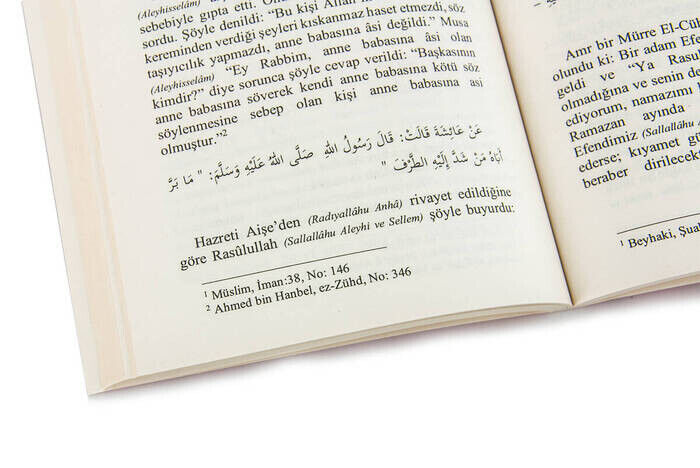 (Aleyhisselâm)
sebebiyle gıpta etti. On
sordu. Şöyle denildi: “Bu kişi Allah
kereminden verdiği şeyleri kıskanmaz haset etmezdi, söz
taşıyıcılık yapmazdı, anne babasına âsi değildi.” Musa
(Aleyhisselâm) “Ey Rabbim, anne babasına âsi olan
kimdir?” diye sorunca şöyle cevap verildi: “Başkasının
anne babasına söverek kendi anne babasına kötü söz
söylenmesine sebep olan kişi anne babasına asi
olmuştur.”2
عَنْ عَائِشَةَ قَالَتْ: قَالَ رَسُولُ اللهِ صَلَّى اللهُ عَلَيْهِ وَسَلَّمَ: " مَا بَرَّ
أَبَاهُ مَنْ شَدَّ إِلَيْهِ الطَّرْفَ "
Hazreti Aişe’den (Radıyallâhu Anhâ) rivayet edildiğine
göre Rasûlullah (Sallallâhu Aleyhi ve Sellem) şöyle buyurdu:
1 Müslim, İman:38, No: 146
2 Ahmed bin Hanbel, ez-Zühd, No: 346
Amr bir Mürre El-Cü
olundu ki: Bir adam Efe
geldi ve “Ya Rasu
olmadığına ve senin de
ediyorum, namazımı
Ramazan ayında
Efendimiz (Sallallâhu
ederse; kıyamet gü
beraber dirilecekt
1 Beyhaki, Şua